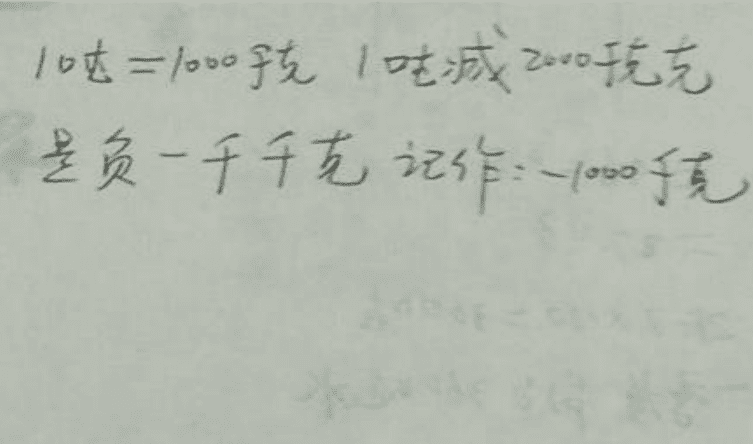 1吨=1000千克 1吨减2000千克克
是负一千千克 记作:-1000千克